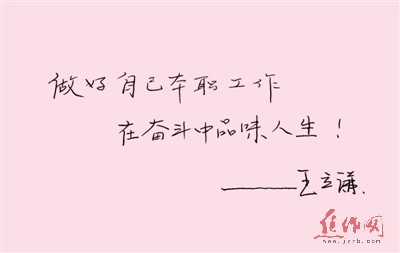 做好自己本职工作
在奋斗中品味人生！
——王立谦
焦作网
www.jzrb.com